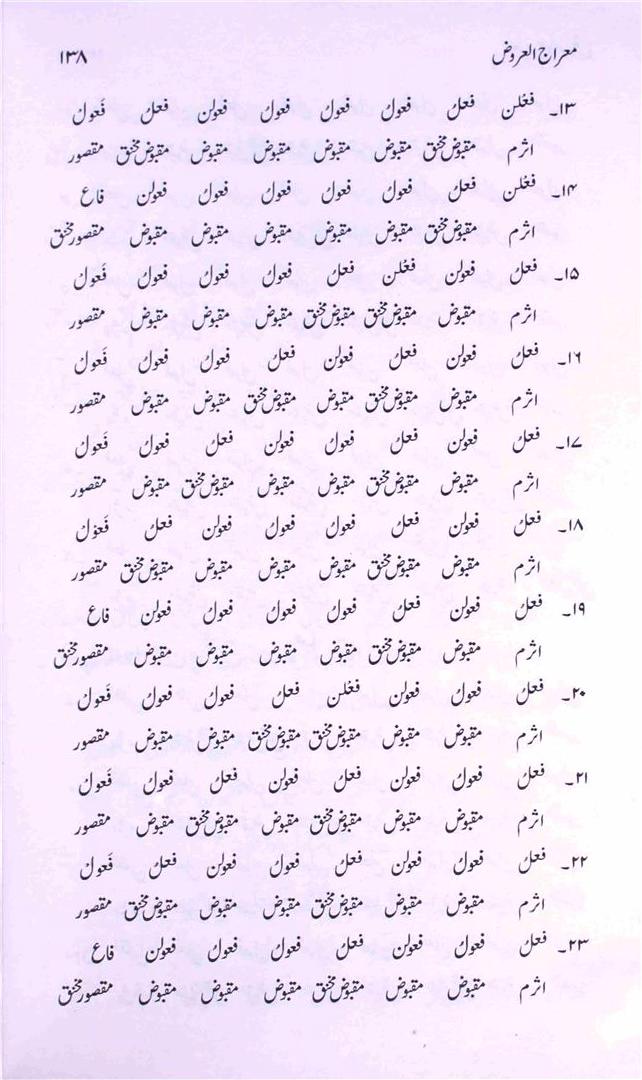 معراج العروض ۱۳۸
۱۳۔ فعْلن فعلُ فعولُ فعولُ فعولُ فعولن فعلُ فَعول
اثرم مقبوض مخنق مقبوض مقبوض مقبوض مقبوض مقبوض مخنق مقصور
۱۴۔ فعْلن فعلُ فعولُ فعولُ فعولُ فعولُ فعولن فاع
اثرم مقبوض مخنق مقبوض مقبوض مقبوض مقبوض مقبوض مقصور مخنق
۱۵۔ فعلُ فعولن فعْلن فعلُ فعولُ فعولُ فعولُ فَعول
اثرم مقبوض مقبوض مخنق مقبوض مخنق مقبوض مقبوض مقبوض مقصور
۱۶۔ فعلُ فعولن فعلُ فعولن فعلُ فعولُ فعولُ فَعول
اثرم مقبوض مقبوض مخنق مقبوض مقبوض مخنق مقبوض مقبوض مقصور
۱۷۔ فعلُ فعولن فعلُ فعولُ فعولن فعلُ فعولُ فَعول
اثرم مقبوض مقبوض مخنق مقبوض مقبوض مقبوض مخنق مقبوض مقصور
۱۸۔ فعلُ فعولن فعلُ فعولُ فعولُ فعولن فعلُ فَعول
اثرم مقبوض مقبوض مخنق مقبوض مقبوض مقبوض مقبوض مخنق مقصور
۱۹۔ فعلُ فعولن فعلُ فعولُ فعولُ فعولُ فعولن فاع
اثرم مقبوض مقبوض مخنق مقبوض مقبوض مقبوض مقبوض مقصور مخنق
۲۰۔ فعلُ فعولُ فعولن فعْلن فعلُ فعولُ فعولُ فَعول
اثرم مقبوض مقبوض مقبوض مخنق مقبوض مخنق مقبوض مقبوض مقصور
۲۱۔ فعلُ فعولُ فعولن فعلُ فعولن فعلُ فعولُ فَعول
اثرم مقبوض مقبوض مقبوض مخنق مقبوض مقبوض مخنق مقبوض مقصور
۲۲۔ فعلُ فعولُ فعولن فعلُ فعولُ فعولن فعلُ فَعول
اثرم مقبوض مقبوض مقبوض مخنق مقبوض مقبوض مقبوض مخنق مقصور
۲۳۔ فعلُ فعولُ فعولن فعلُ فعولُ فعولُ فعولن فاع
اثرم مقبوض مقبوض مقبوض مخنق مقبوض مقبوض مقبوض مقصور مخنق